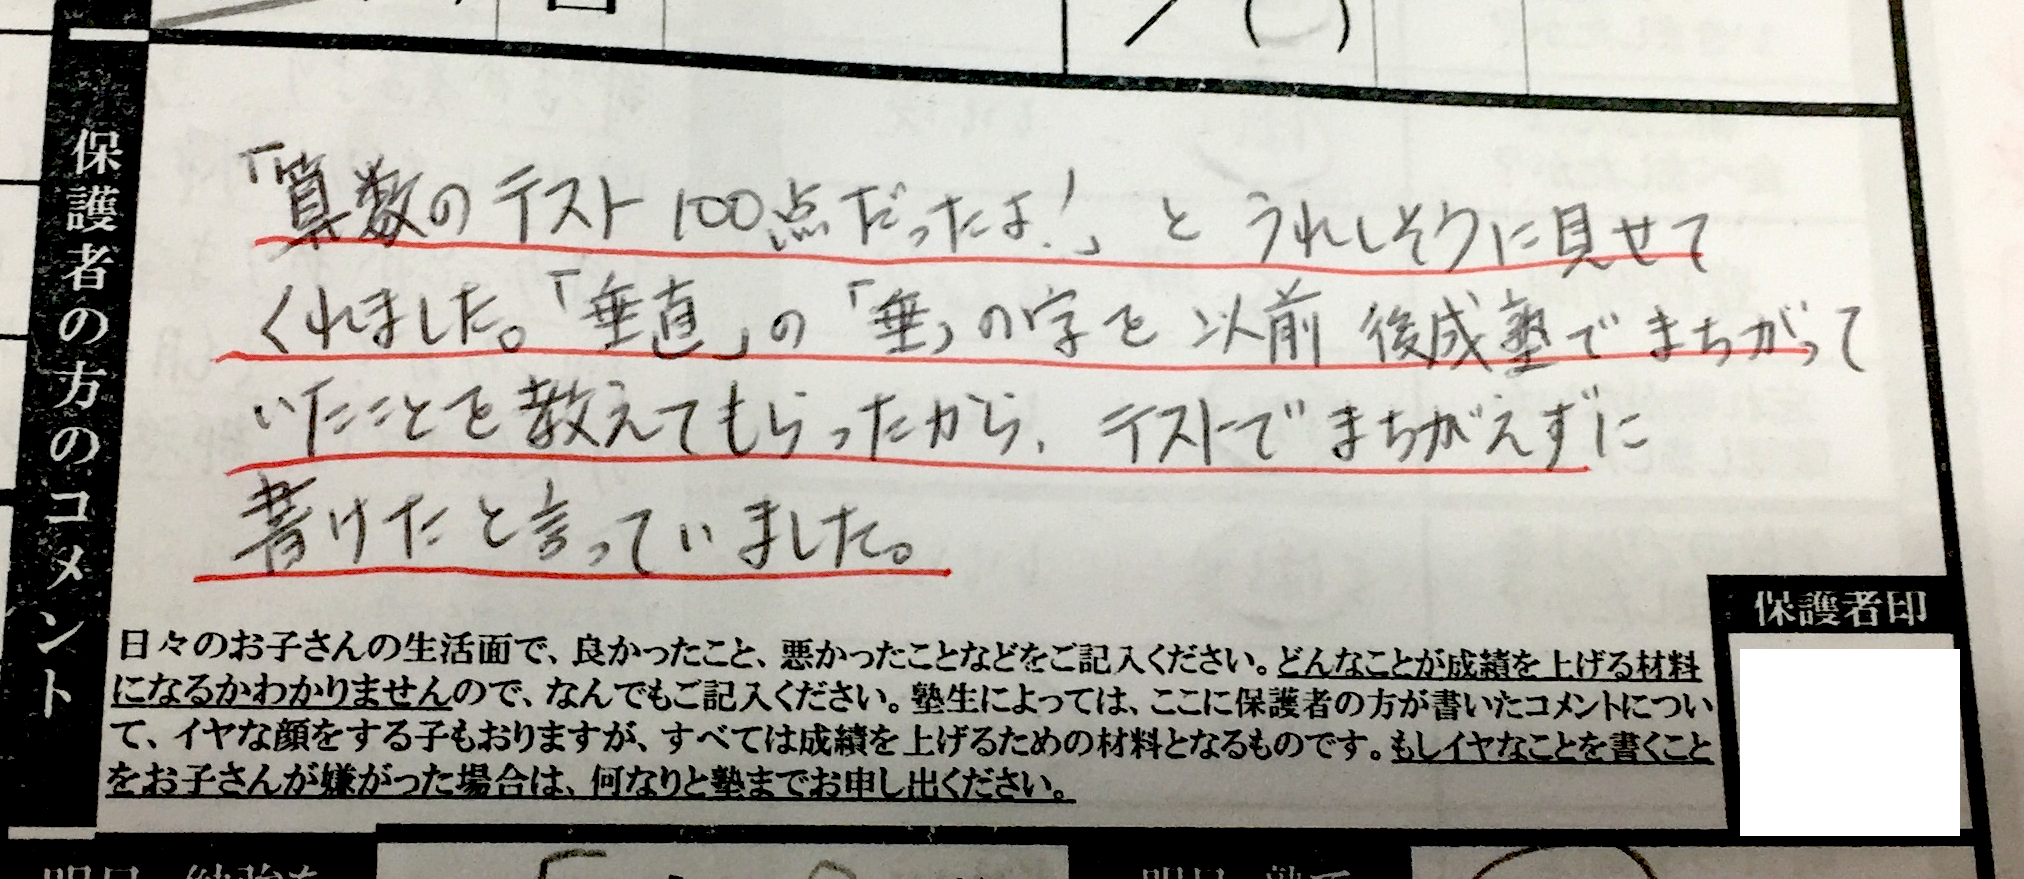 保護者の方のコメント
「算数のテスト100点だったよ!」とうれしそうに見せて
くれました。「垂直」の「垂」の字を以前後成塾でまちがって
いたことを教えてもらったから、テストでまちがえずに
書けたと言っていました。
日々のお子さんの生活面で、良かったこと、悪かったことなどをご記入ください。どんなことが成績を上げる材料
になるかわかりませんので、なんでもご記入ください。塾生によっては、ここに保護者の方が書いたコメントについ
て、イヤな顔をする子もおりますが、すべては成績を上げるための材料となるものです。もしイヤなことを書くこと
をお子さんが嫌がった場合は、何なりと塾までお申し出ください。
保護者印